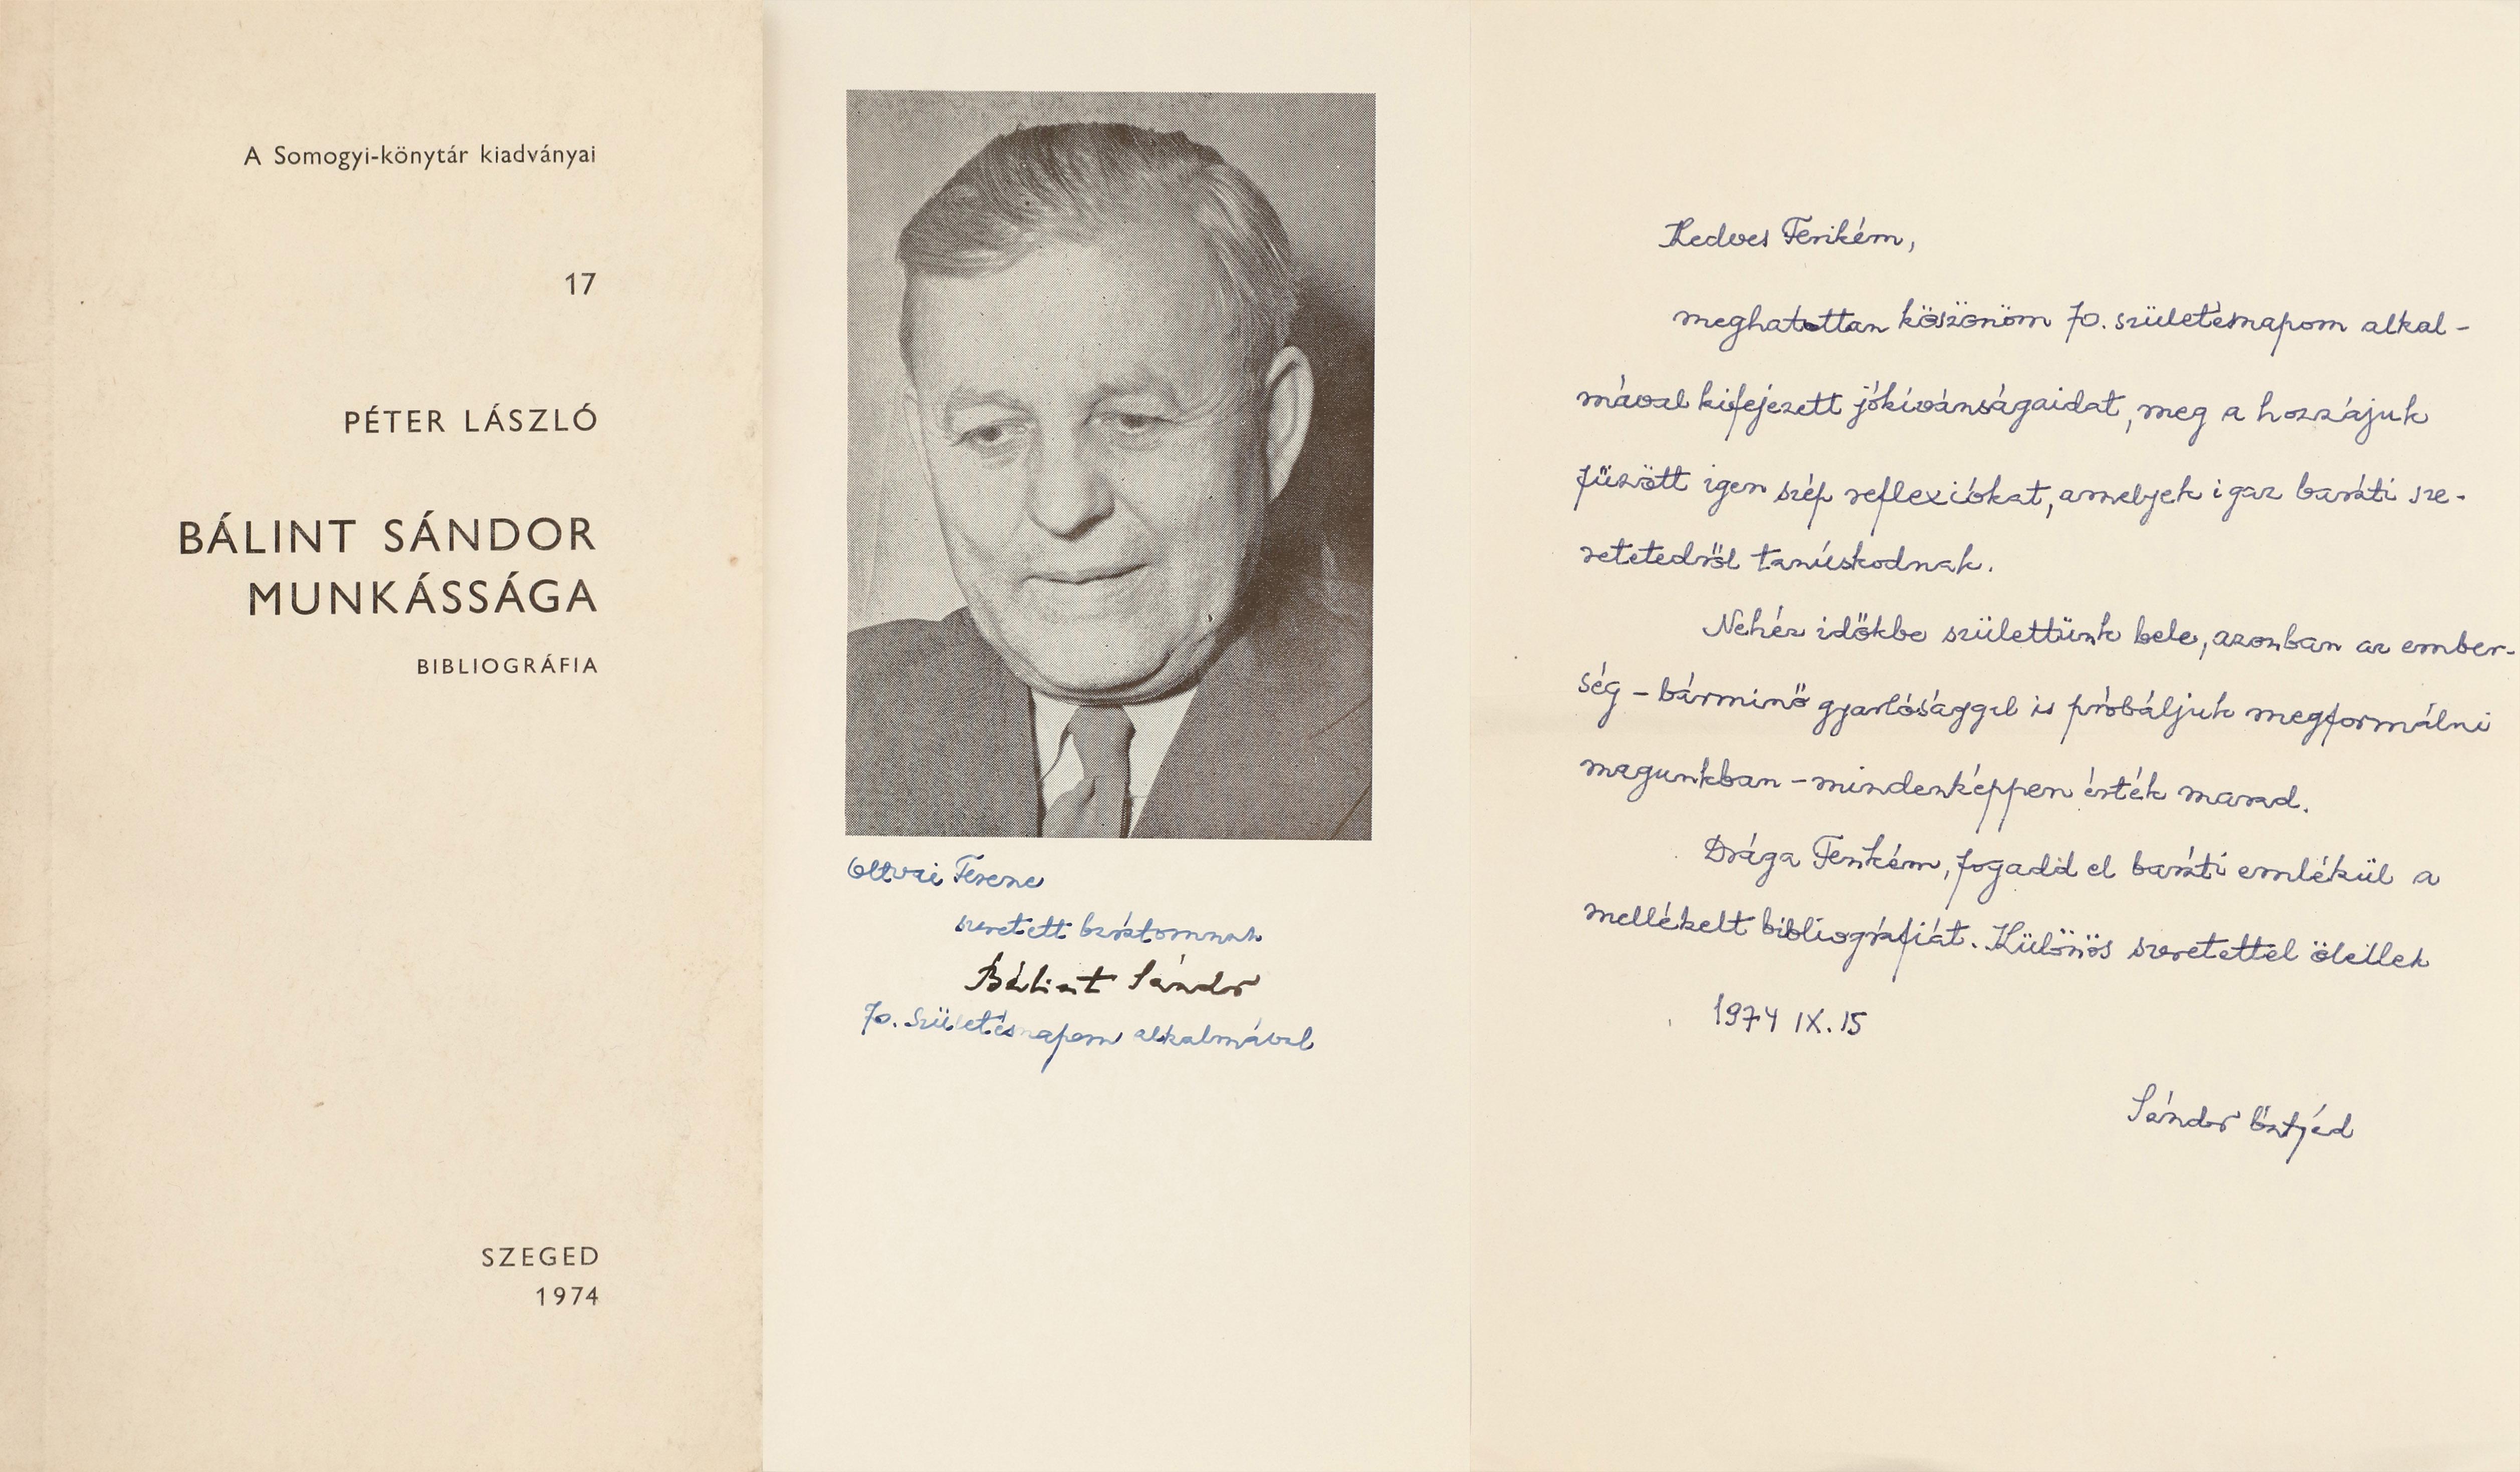 A Somogyi-könytár kiadványai
17
PÉTER LÁSZLÓ
BÁLINT SÁNDOR
MUNKÁSSÁGA
BIBLIOGRÁFIA
SZEGED
1974
Oltvai Ferenc
szeretett barátomnak
Bálint Sándor
70. születésnapom alkalmával
Kedves Ferikém,
meghatottan köszönöm 70. születésnapom alkal-
mával kifejezett jókívánságaidat, meg a hozzájuk
fűzött igen szép reflexiókat, amelyek igaz baráti sze-
retetedről tanúskodnak.
Nehéz időkbe születtünk bele, azonban az ember-
ség – bárminő gyarlósággal is próbáljuk megformálni
magunkban – mindenképpen érték marad.
Drága Ferikém, fogadd el baráti emlékül a
mellékelt bibliográfiát. Különös szeretettel ölellek
1974 IX. 15
Sándor